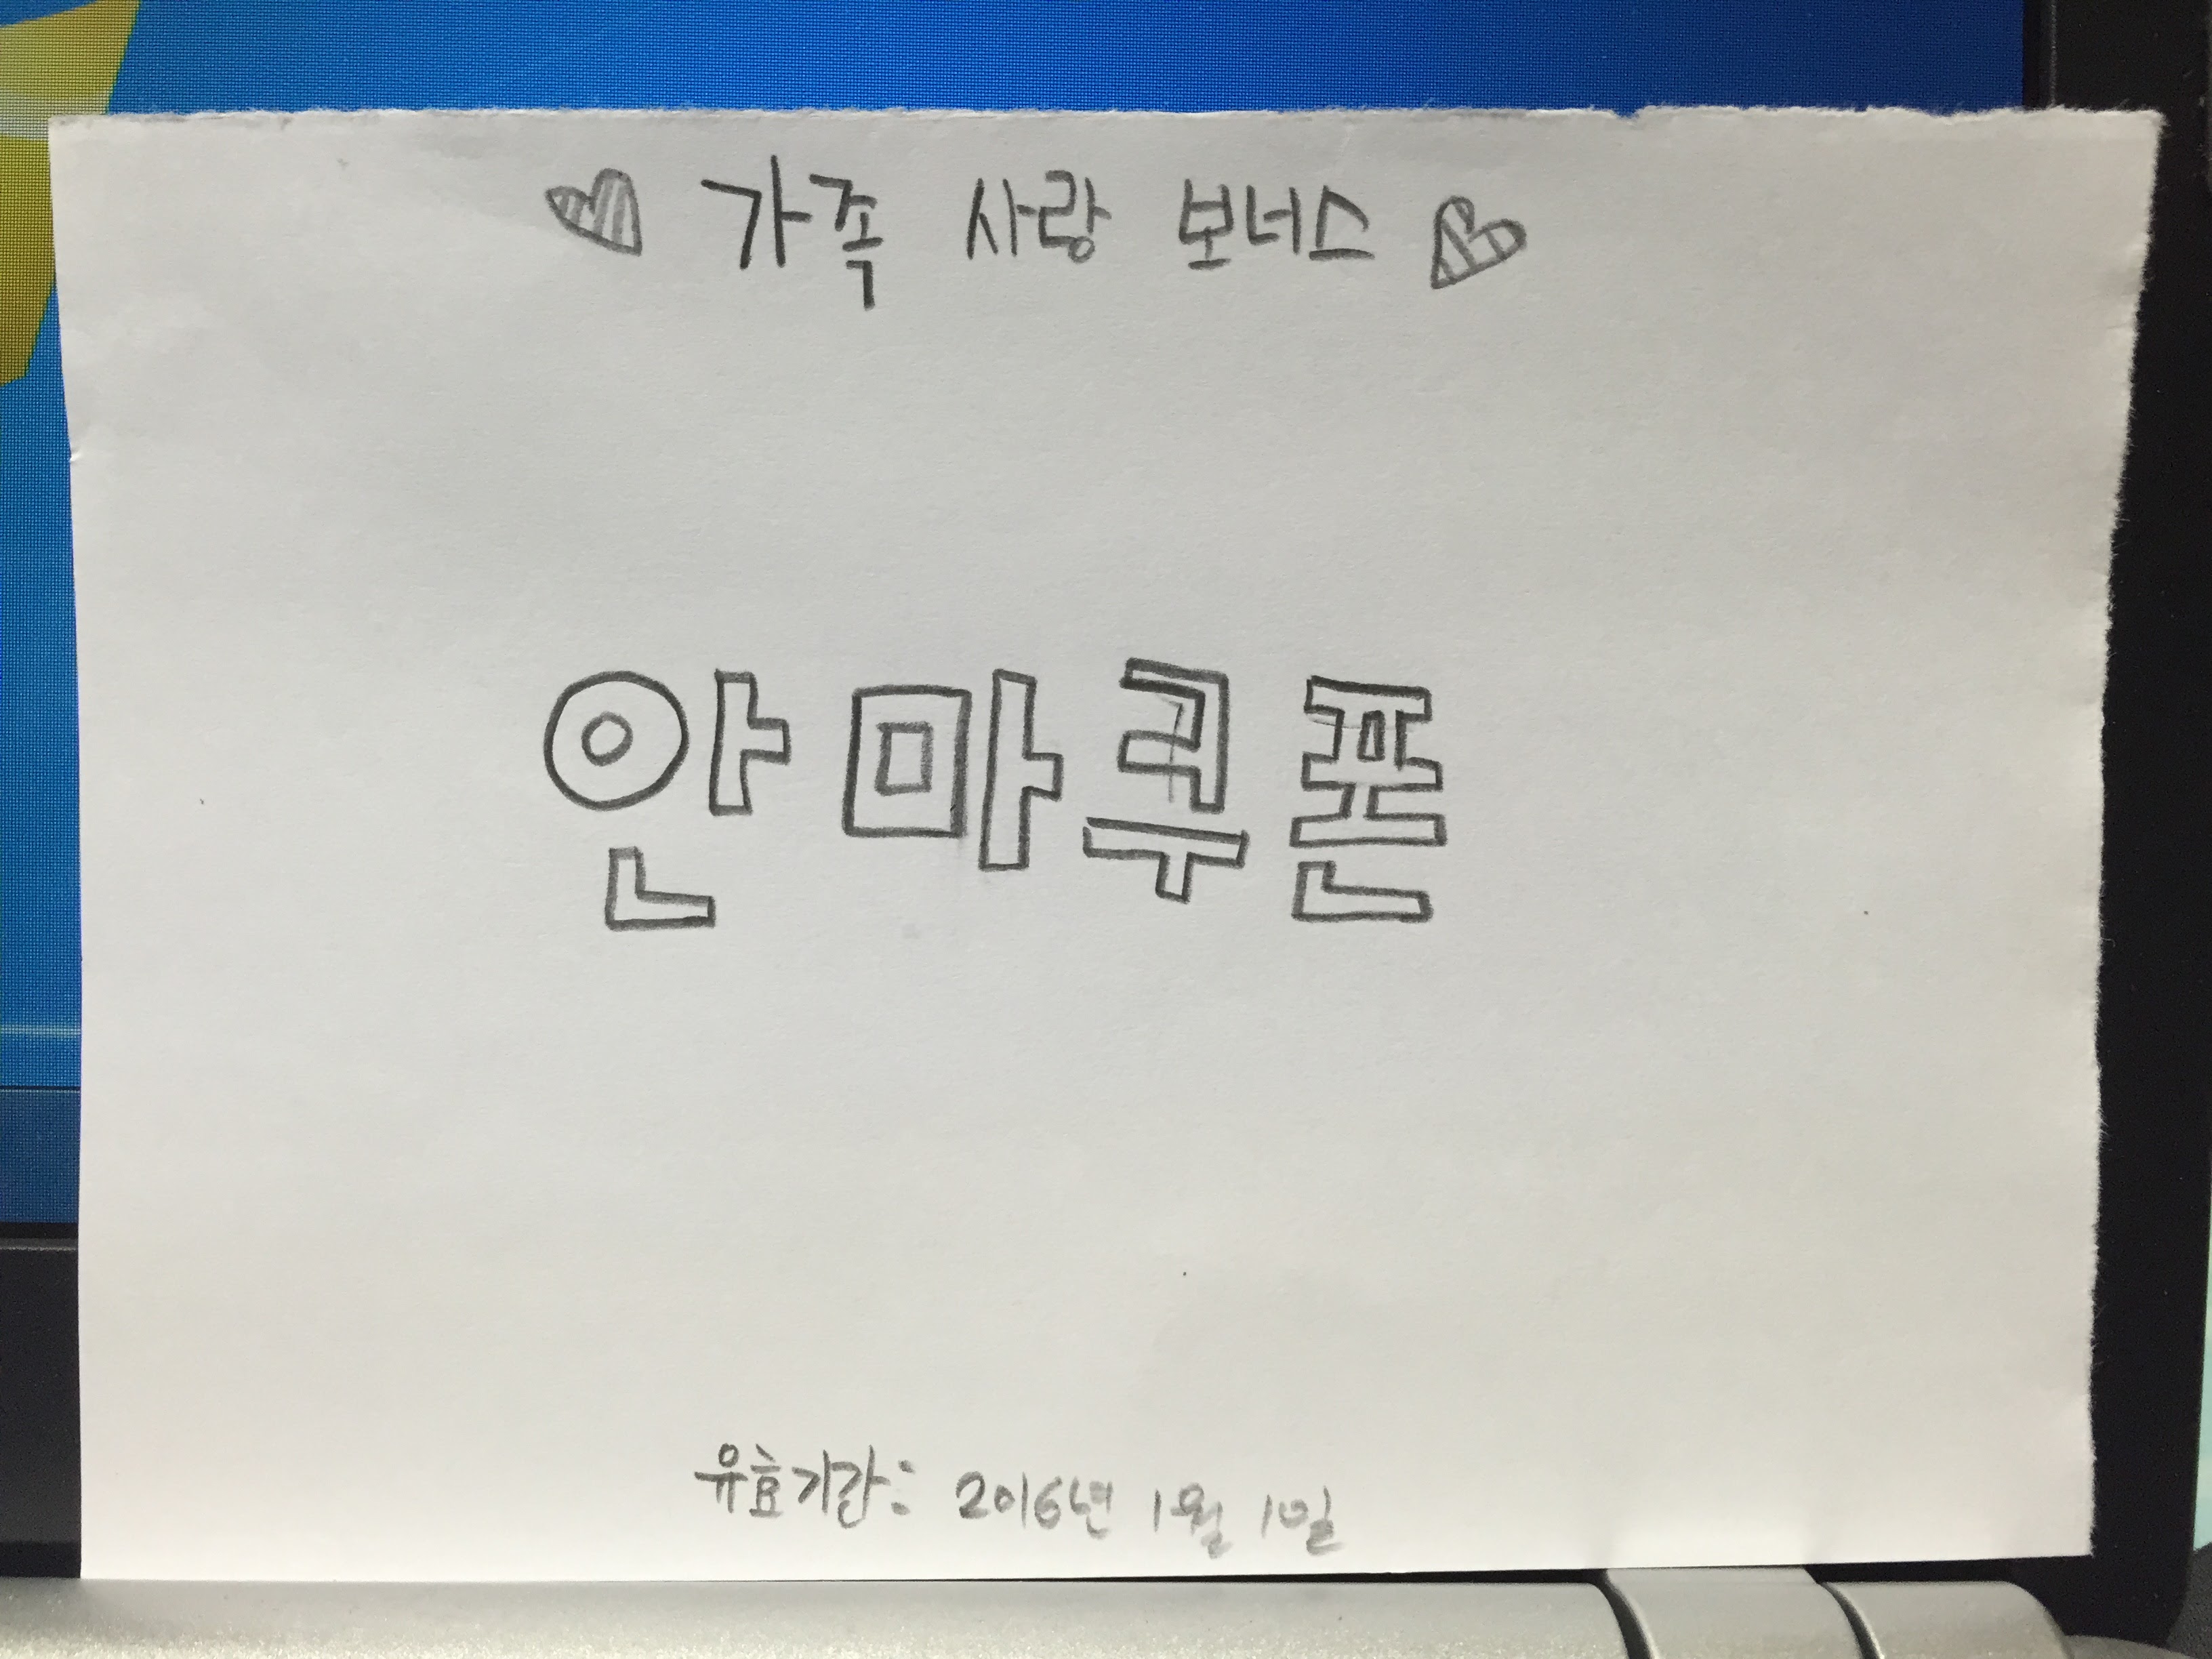 ♥ 가족 사랑 보너스 ♥
안마쿠폰
유효기간: 2016년 1월 1일